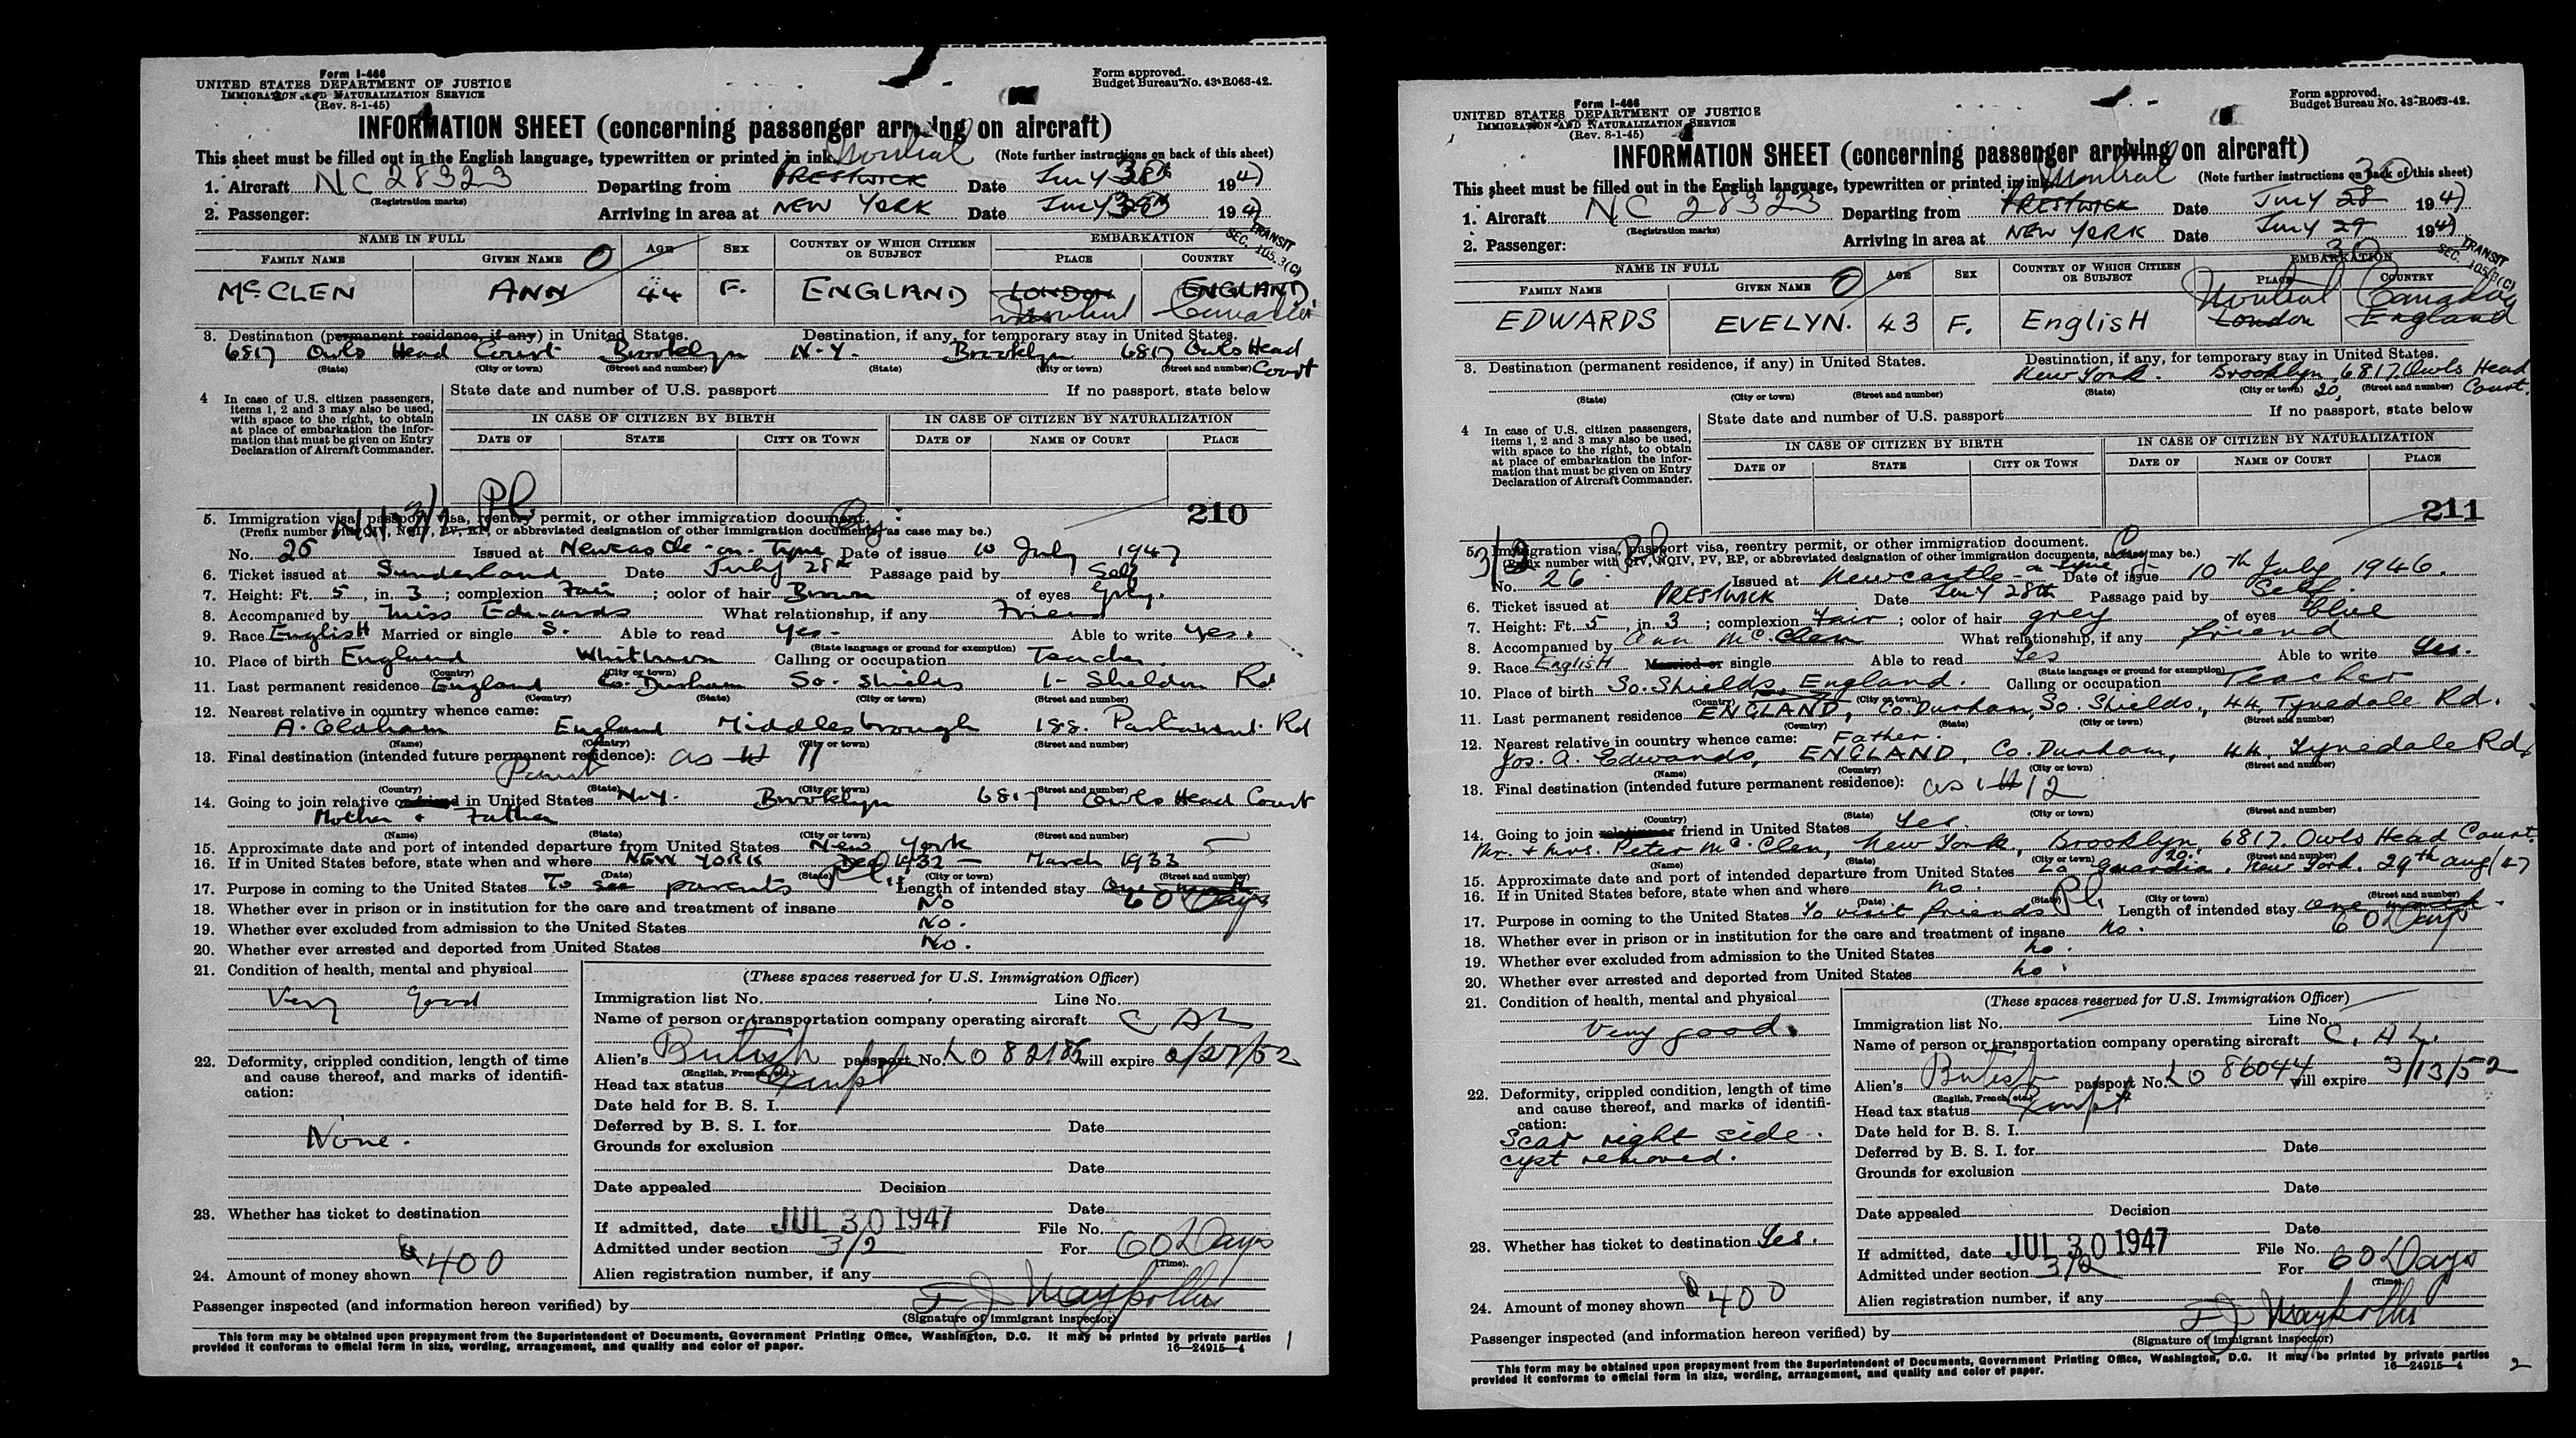 Form I-466
UNITED STATES DEPARTMENT OF JUSTICE
IMMIGRATION AND NATURALIZATION SERVICE
(Rev. 8-1-45)
Form approved.
Budget Bureau No. 43-R063-42.
INFORMATION SHEET (concerning passenger arriving on aircraft)
This sheet must be filled out in the English language, typewritten or printed in ink. Montreal (Note further instructions on back of this sheet)
1. Aircraft NC 28323 Departing from PRESTWICK Date July 1947
(Registration marks)
2. Passenger: Arriving in area at NEW YORK Date July 1947
TRANSIT
SEC. 105.3(C)
NAME IN FULL AGE SEX COUNTRY OF WHICH CITIZEN OR SUBJECT EMBARKATION
FAMILY NAME GIVEN NAME PLACE COUNTRY
McCLEN ANN 44 F. ENGLAND LONDON ENGLAND
Montreal Canada
3. Destination (permanent residence, if any) in United States. Destination, if any, for temporary stay in United States.
6817 Owls Head Court Brooklyn N.Y. Brooklyn 6817 Owls Head Court
(State) (City or town) (Street and number) (State) (City or town) (Street and number)
4 In case of U.S. citizen passengers, items 1, 2 and 3 may also be used, with space to the right, to obtain at place of embarkation the information that must be given on Entry Declaration of Aircraft Commander.
State date and number of U.S. passport If no passport, state below
IN CASE OF CITIZEN BY BIRTH IN CASE OF CITIZEN BY NATURALIZATION
DATE OF STATE CITY OR TOWN DATE OF NAME OF COURT PLACE
210
5. Immigration visa, passport visa, reentry permit, or other immigration document.
(Prefix number with QIV, NQIV, PV, RP, or abbreviated designation of other immigration documents, as case may be.)
No. 25 Issued at Newcastle-on-Tyne Date of issue 10 July 1947
6. Ticket issued at Sunderland Date July 28th Passage paid by Self
7. Height: Ft. 5, in. 3; complexion Fair; color of hair Brown of eyes Grey.
8. Accompanied by Miss Edwards What relationship, if any Friend
9. Race English Married or single S. Able to read Yes- Able to write Yes.
(State language or ground for exemption)
10. Place of birth England Whitburn Calling or occupation Teacher
(Country) (City or town)
11. Last permanent residence England Co. Durham So. Shields 1- Sheldon Rd
(Country) (State) (City or town) (Street and number)
12. Nearest relative in country whence came:
A. Oldham England Middlesbrough 188. Parliament Rd
(Name) (Country) (City or town) (Street and number)
13. Final destination (intended future permanent residence): as 11
(Country) (State) (City or town) (Street and number)
14. Going to join relative or friend in United States N.Y. Brooklyn 6817 Owls Head Court
Mother + Father
(Name) (State) (City or town) (Street and number)
15. Approximate date and port of intended departure from United States New York
16. If in United States before, state when and where NEW YORK Dec 1932 - March 1933
(Date) (State) (City or town) (Street and number)
17. Purpose in coming to the United States To see parents Length of intended stay 60 Days
18. Whether ever in prison or in institution for the care and treatment of insane No
19. Whether ever excluded from admission to the United States No.
20. Whether ever arrested and deported from United States No.
21. Condition of health, mental and physical
Very Good
22. Deformity, crippled condition, length of time and cause thereof, and marks of identification:
None.
23. Whether has ticket to destination
24. Amount of money shown 400
(These spaces reserved for U.S. Immigration Officer)
Immigration list No. Line No.
Name of person or transportation company operating aircraft C A L
Alien's British passport No. LO 82185 will expire 2/27/52
(English, French, etc.)
Head tax status Exempt
Date held for B. S. I.
Deferred by B. S. I. for Date
Grounds for exclusion
Date
Date appealed Decision
Date
If admitted, date JUL 30 1947 File No.
Admitted under section 3/2 For 60 Days
(Time)
Alien registration number, if any
Passenger inspected (and information hereon verified) by
(Signature of immigrant inspector)
This form may be obtained upon prepayment from the Superintendent of Documents, Government Printing Office, Washington, D.C. It may be printed by private parties
provided it conforms to official form in size, wording, arrangement, and quality and color of paper. 16—24915-4
1
Form I-466
UNITED STATES DEPARTMENT OF JUSTICE
IMMIGRATION AND NATURALIZATION SERVICE
(Rev. 8-1-45)
Form approved.
Budget Bureau No. 43-R063-42.
INFORMATION SHEET (concerning passenger arriving on aircraft)
This sheet must be filled out in the English language, typewritten or printed in ink. Montreal (Note further instructions on back of this sheet)
30
1. Aircraft NC 28323 Departing from PRESTWICK Date July 28 1947
(Registration marks)
2. Passenger: Arriving in area at NEW YORK Date July 29 1947
30
TRANSIT
SEC. 105.3(C)
NAME IN FULL AGE SEX COUNTRY OF WHICH CITIZEN OR SUBJECT EMBARKATION
FAMILY NAME GIVEN NAME PLACE COUNTRY
Montreal Canada
EDWARDS EVELYN. 43 F. EnglisH London England
3. Destination (permanent residence, if any) in United States. Destination, if any, for temporary stay in United States.
New York. Brooklyn 20, 6817 Owls Head Court.
(State) (City or town) (Street and number) (State) (City or town) (Street and number)
4 In case of U.S. citizen passengers, items 1, 2 and 3 may also be used, with space to the right, to obtain at place of embarkation the information that must be given on Entry Declaration of Aircraft Commander.
State date and number of U.S. passport If no passport, state below
IN CASE OF CITIZEN BY BIRTH IN CASE OF CITIZEN BY NATURALIZATION
DATE OF STATE CITY OR TOWN DATE OF NAME OF COURT PLACE
211
5. Immigration visa, passport visa, reentry permit, or other immigration document.
(Prefix number with QIV, NQIV, PV, RP, or abbreviated designation of other immigration documents, as case may be.)
3/2
No. 26 Issued at Newcastle-on-Tyne Date of issue 10th July 1946.
6. Ticket issued at PRESTWICK Date July 28th Passage paid by Self.
7. Height: Ft. 5, in. 3; complexion Fair; color of hair grey of eyes blue
8. Accompanied by Ann McClen What relationship, if any friend
9. Race EnglisH Married or single Able to read Yes Able to write Yes.
(State language or ground for exemption)
10. Place of birth So. Shields, England. Calling or occupation Teacher
(Country) (City or town)
11. Last permanent residence ENGLAND, Co. Durham, So. Shields., 44, Tynedale Rd.
(Country) (State) (City or town) (Street and number)
12. Nearest relative in country whence came: Father.
Jos. A. Edwards, ENGLAND, Co. Durham, 44, Tynedale Rd,
(Name) (Country) (City or town) (Street and number)
13. Final destination (intended future permanent residence): as 12
(Country) (State) (City or town) (Street and number)
14. Going to join relative or friend in United States Yes.
Mr. & Mrs. Peter McClen, New York, Brooklyn, 20. 6817. Owls Head Court.
(Name) (State) (City or town) (Street and number)
15. Approximate date and port of intended departure from United States La Guardia, New York. 29th Aug/47
16. If in United States before, state when and where no.
(Date) (State) (City or town) (Street and number)
17. Purpose in coming to the United States To visit friends. Length of intended stay one month.
60 Days
18. Whether ever in prison or in institution for the care and treatment of insane no.
19. Whether ever excluded from admission to the United States no.
20. Whether ever arrested and deported from United States no.
21. Condition of health, mental and physical
Very good.
22. Deformity, crippled condition, length of time and cause thereof, and marks of identification:
Scar right side.
cyst removed.
23. Whether has ticket to destination Yes.
24. Amount of money shown 400
(These spaces reserved for U.S. Immigration Officer)
Immigration list No. Line No.
Name of person or transportation company operating aircraft C. A L.
Alien's British passport No. LO 86044 will expire 3/13/52
(English, French, etc.)
Head tax status Exempt
Date held for B. S. I.
Deferred by B. S. I. for Date
Grounds for exclusion
Date
Date appealed Decision
Date
If admitted, date JUL 30 1947 File No.
Admitted under section 3/2 For 60 Days
(Time)
Alien registration number, if any
Passenger inspected (and information hereon verified) by
(Signature of immigrant inspector)
This form may be obtained upon prepayment from the Superintendent of Documents, Government Printing Office, Washington, D.C. It may be printed by private parties
provided it conforms to official form in size, wording, arrangement, and quality and color of paper. 16—24915-4
2